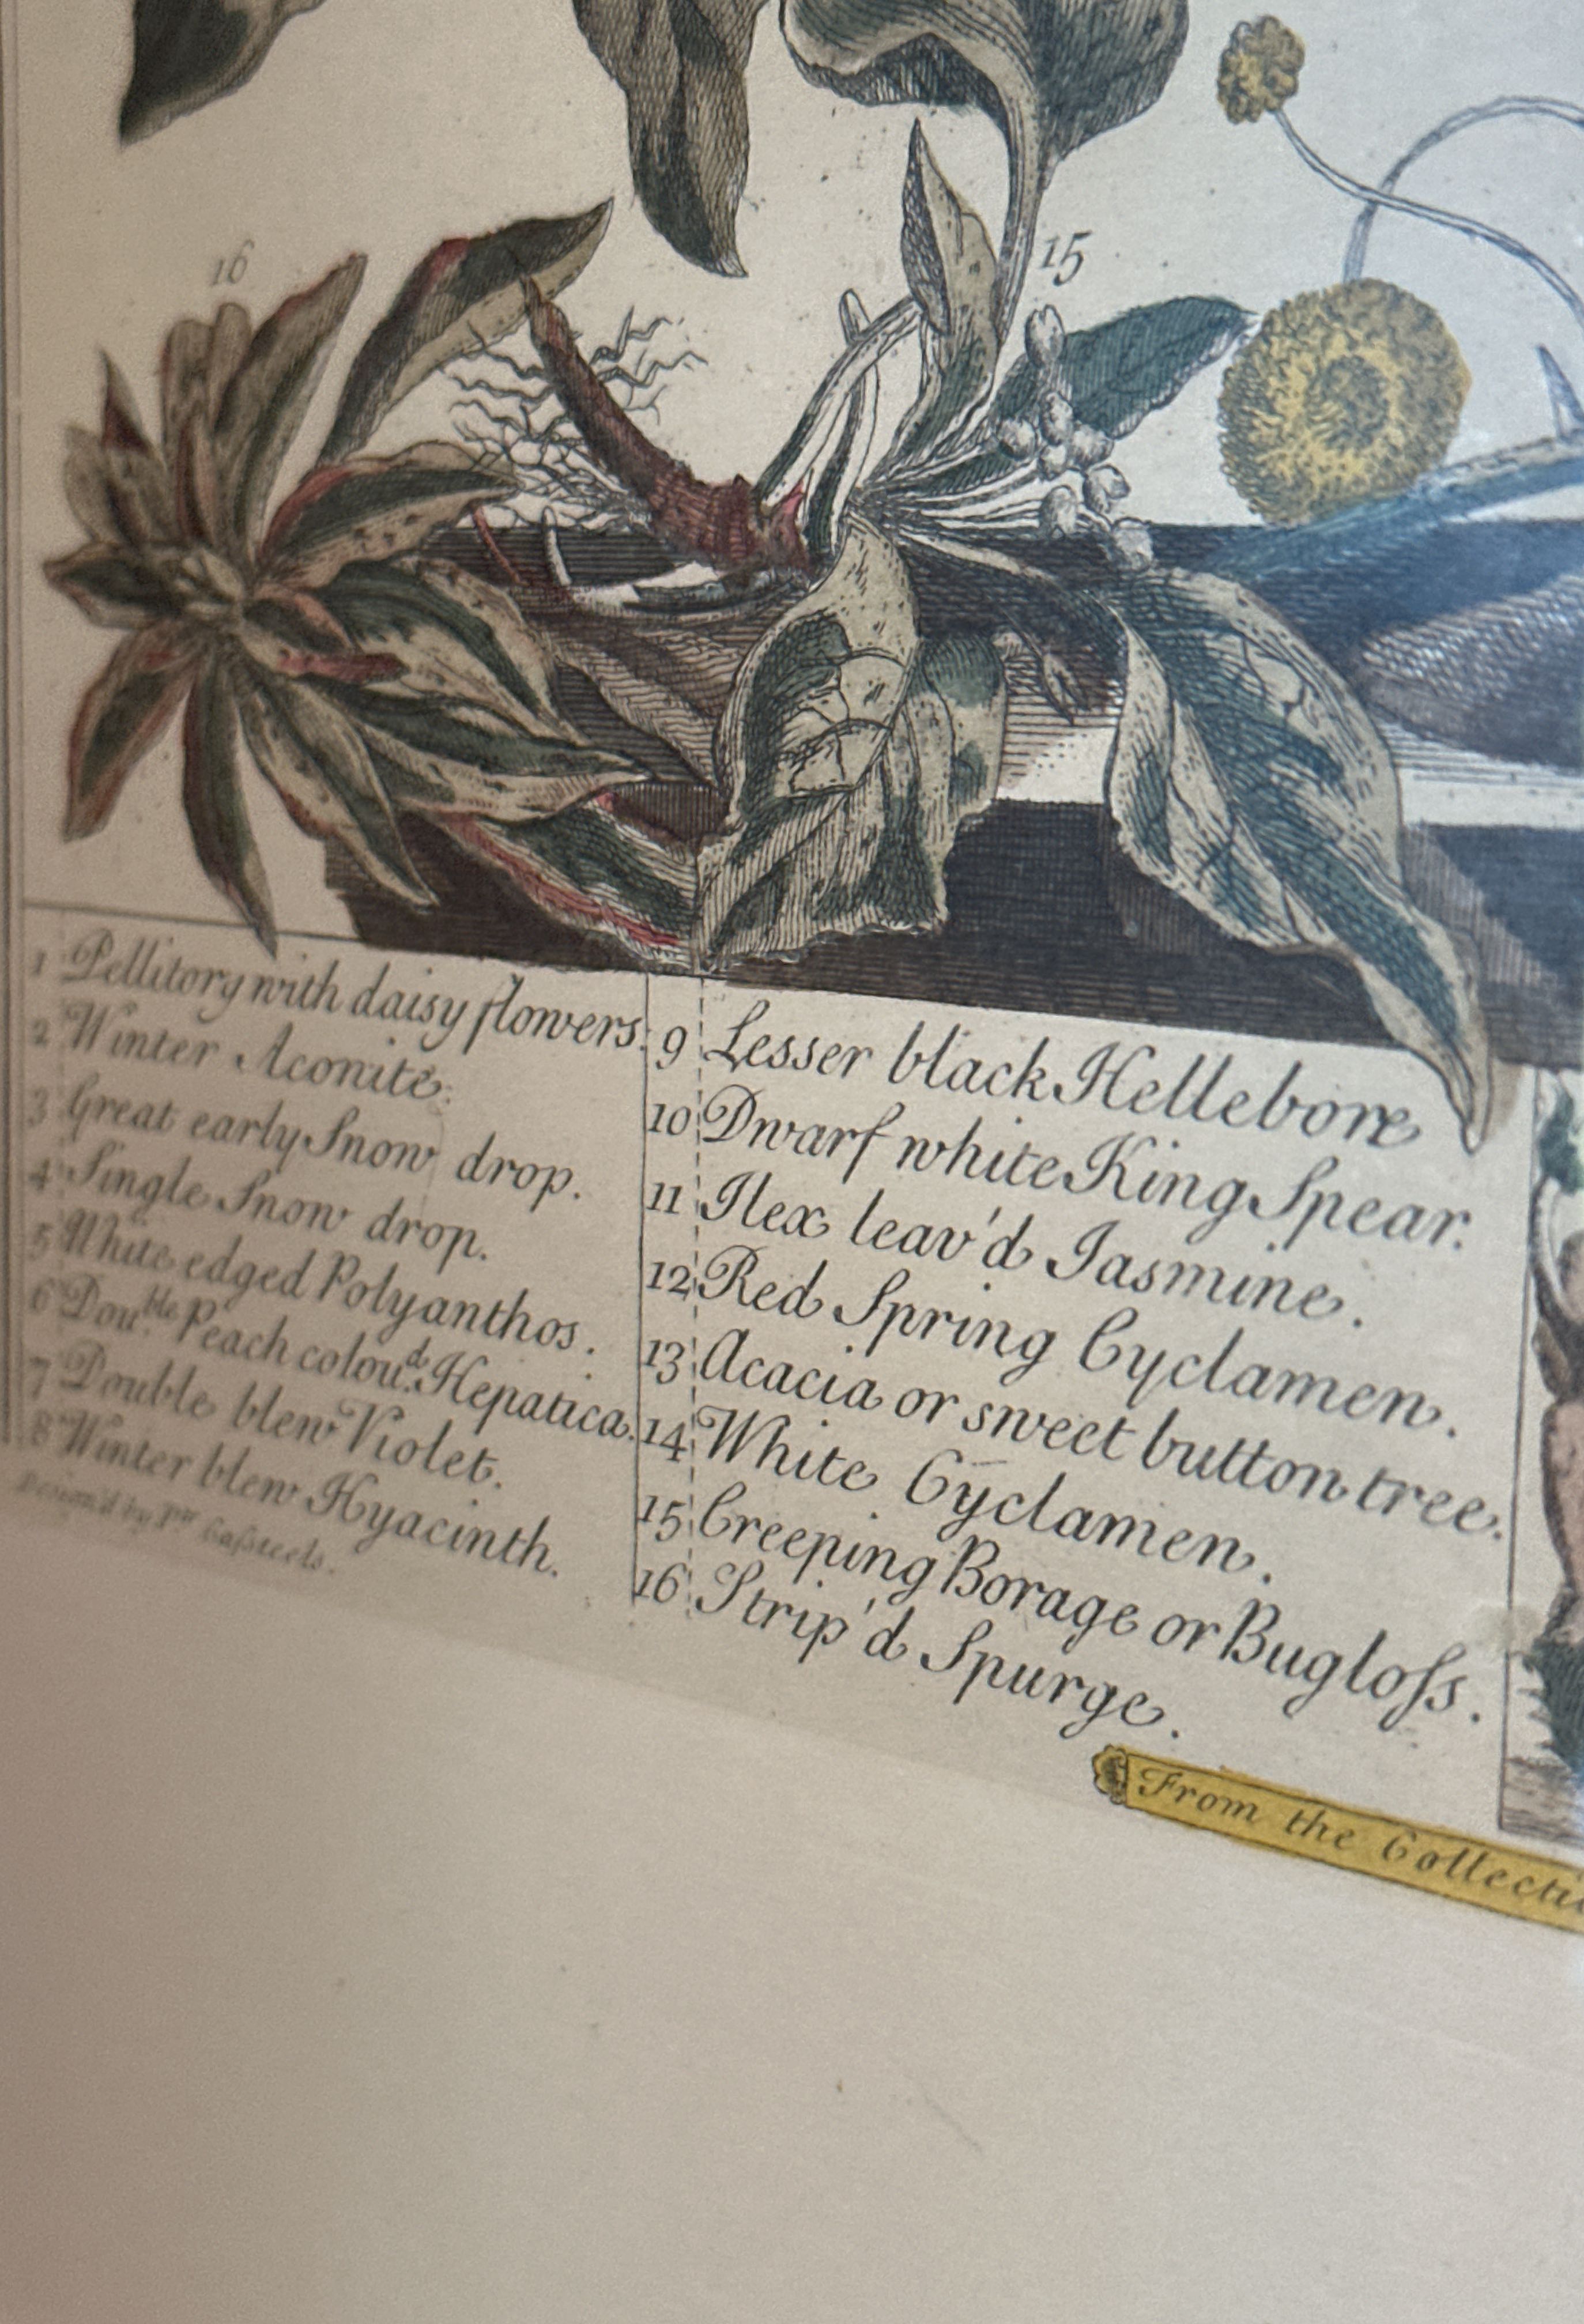 16
15
1 Pellitory with daisy flowers.
2 Winter Aconite.
3 Great early Snow drop.
4 Single Snow drop.
5 White edged Polyanthos.
6 Dou.ble Peach colou.d Hepatica.
7 Double blew Violet.
8 Winter blew Hyacinth.
Design'd by Pr. Casteels.
9 Lesser black Hellebore
10 Dwarf white King Spear.
11 Ilex leav'd Jasmine.
12 Red Spring Cyclamen.
13 Acacia or sweet button tree.
14 White Cyclamen.
15 Creeping Borage or Bugloſs.
16 Strip'd Spurge.
From the Collecti